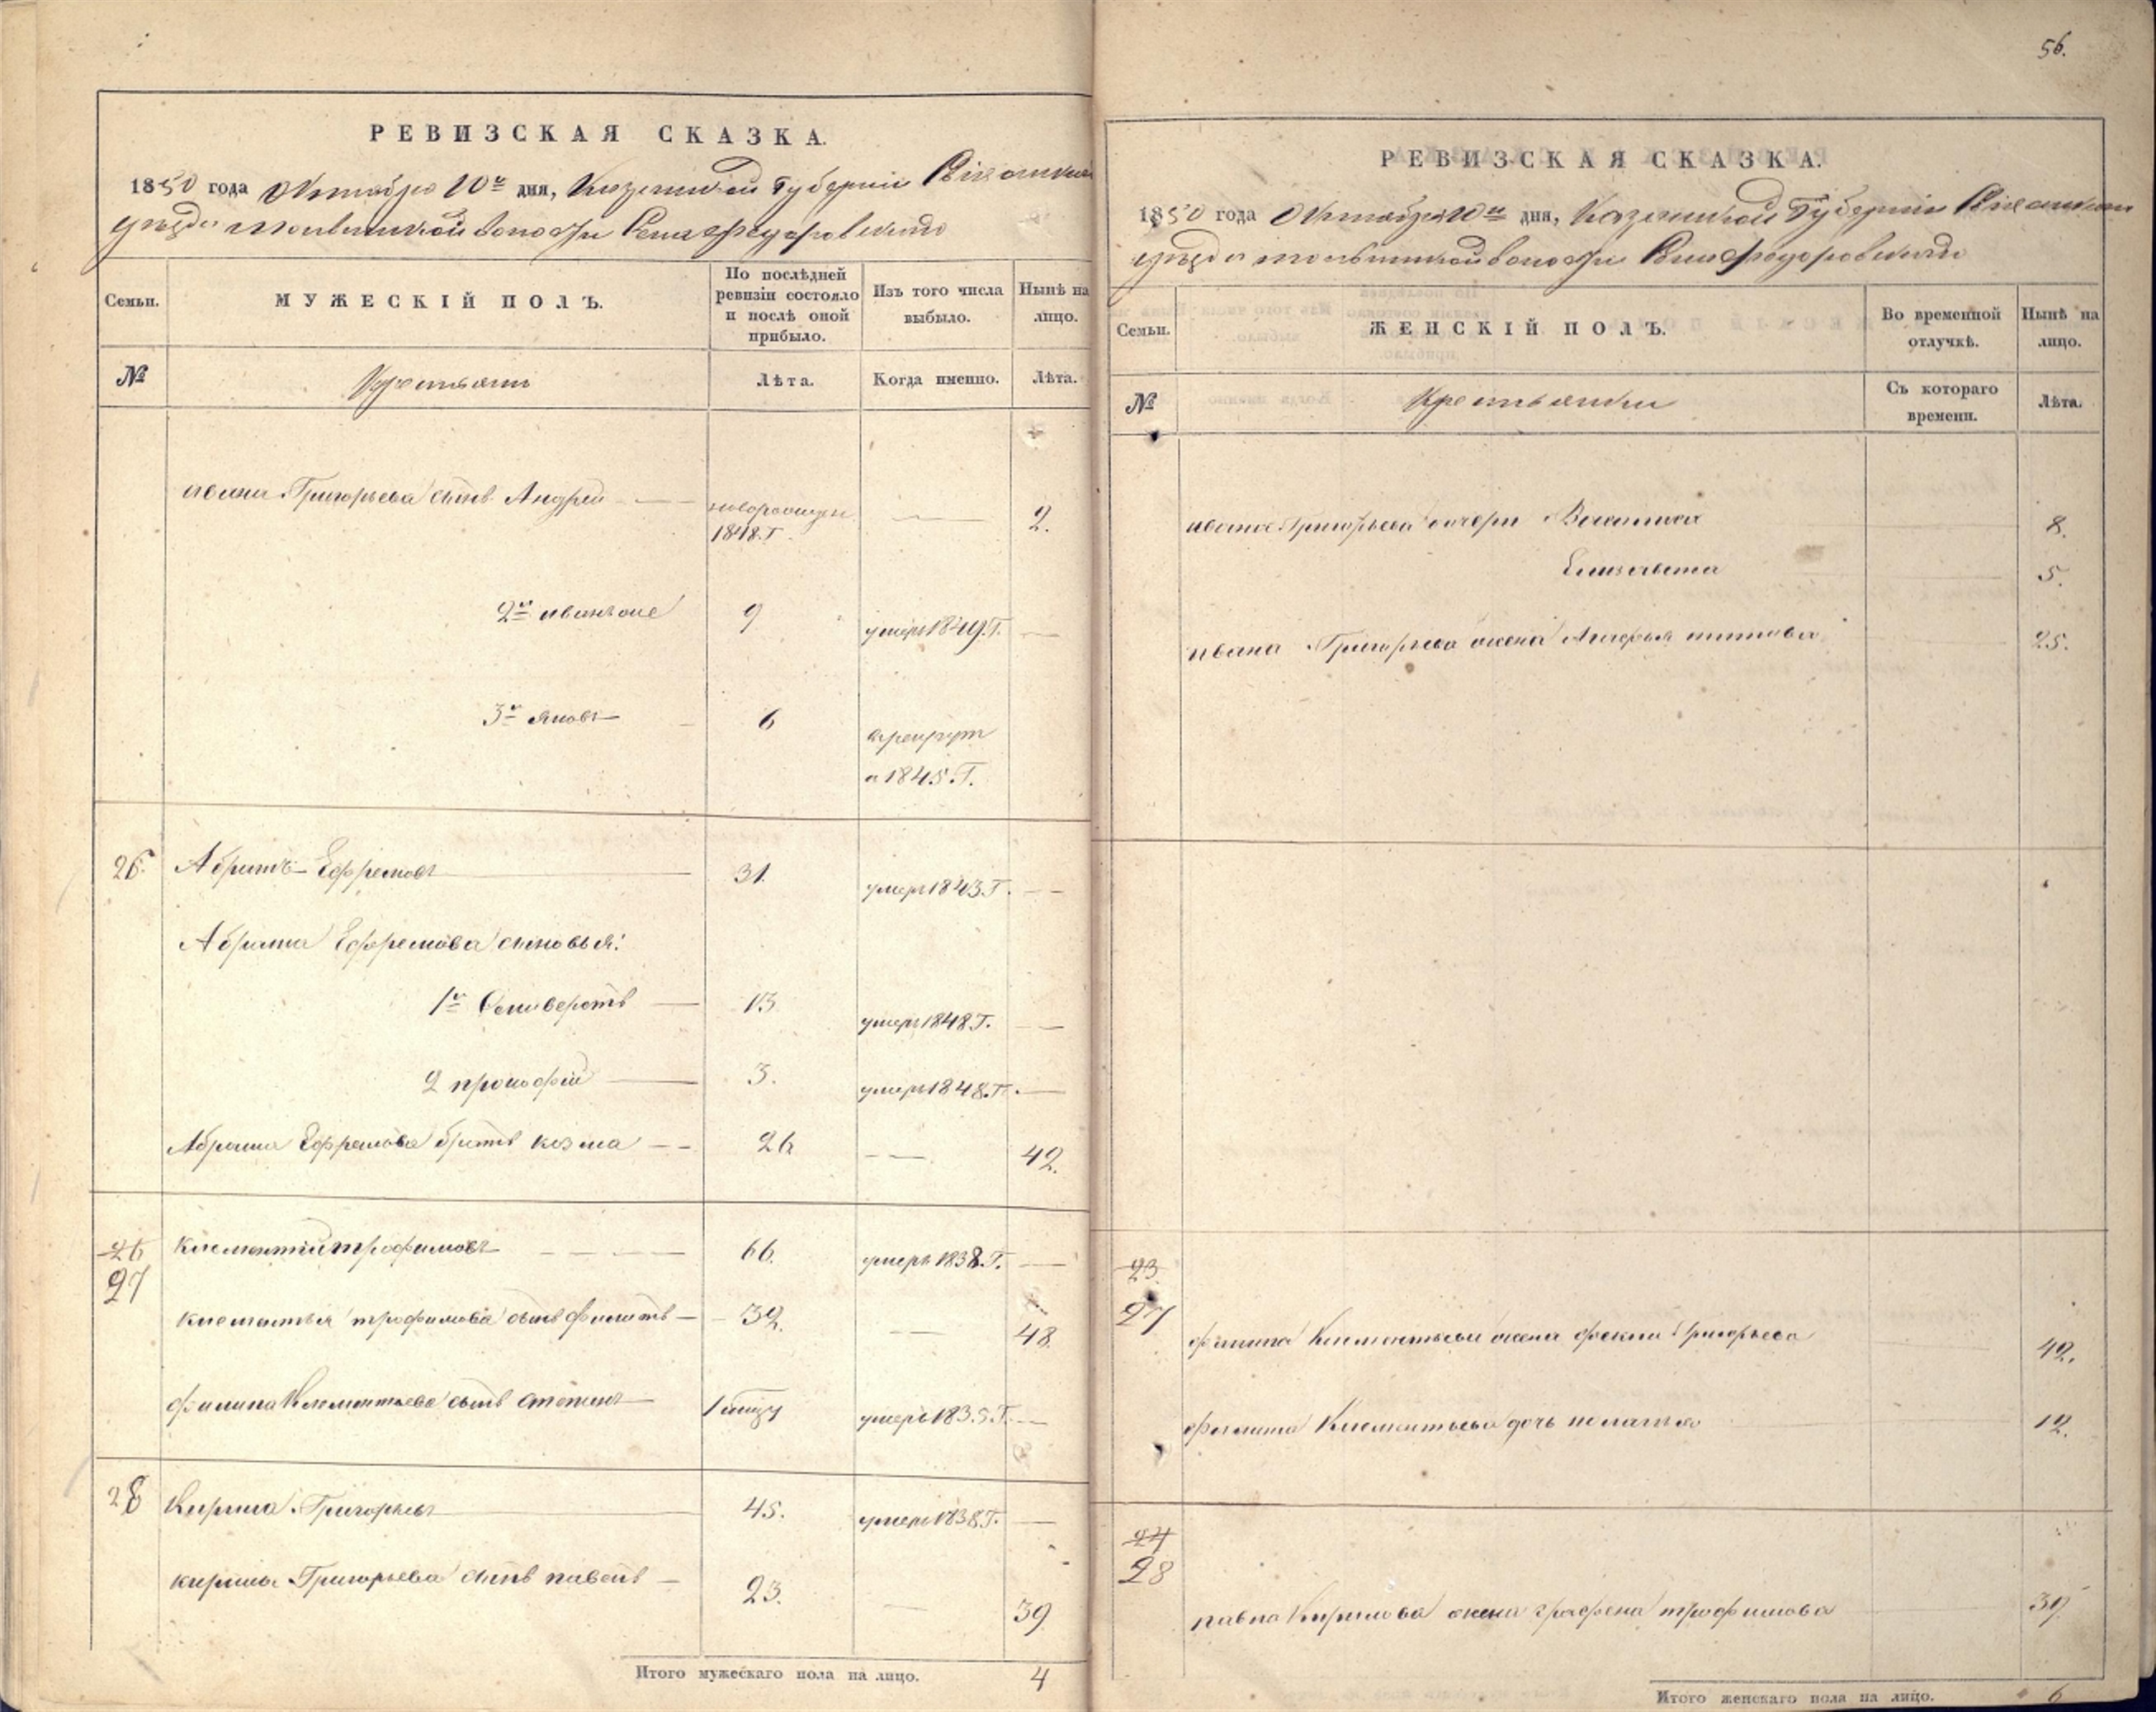 56.
РЕВИЗСКАЯ СКАЗКА.
1850 года Октября 10го дня, Казанской Губернии
уѣзда волости
Семьи.
МУЖЕСКІЙ ПОЛЪ.
По послѣдней ревизіи состояло и послѣ оной прибыло.
Изъ того числа выбыло.
Нынѣ на лицо.
№
Крестьяни
Лѣта.
Когда именно.
Лѣта.
ивана Григорьева сынъ Андрей новорожден 1848.Г. — 2.
2й 9 умеръ 1849.Г. —
3й 6 1845.Г.
26. Абрамъ Ефремовъ 31. умеръ 1843.Г. —
Абрама Ефремова сыновья:
1й Селиверстъ — 13 умеръ 1848.Г. —
2 прокофій — 3. умеръ 1848.Г. —
Абрама Ефремова братъ козма — 26 — 42.
26
27 Клементій трофимовъ 66. умеръ 1838.Г. —
клементья трофимова сынъ филипъ — 32. — 48.
филипа Клементьева сынъ степанъ умеръ 1835.Г. —
28 Кирила Григорьевъ 45. умеръ 1838.Г. —
кирилы Григорьева сынъ павелъ — 23. — 39
Итого мужескаго пола на лицо. 4
РЕВИЗСКАЯ СКАЗКА.
1850 года Октября 10го дня, Казанской Губернии
уѣзда волости
Семьи.
ЖЕНСКІЙ ПОЛЪ.
Во временной отлучкѣ.
Нынѣ на лицо.
№
Крестьянки
Съ котораго времени.
Лѣта.
Григорьева дочери 8.
Елизавета 5.
ивана Григорьева жена Агафья титова 25.
23
27
филипа Клементьева жена фекла Григорьева 42.
филипа Клементьева дочь 12.
24
28
павла Кирилова жена графена трофимова
Итого женскаго пола на лицо. 6